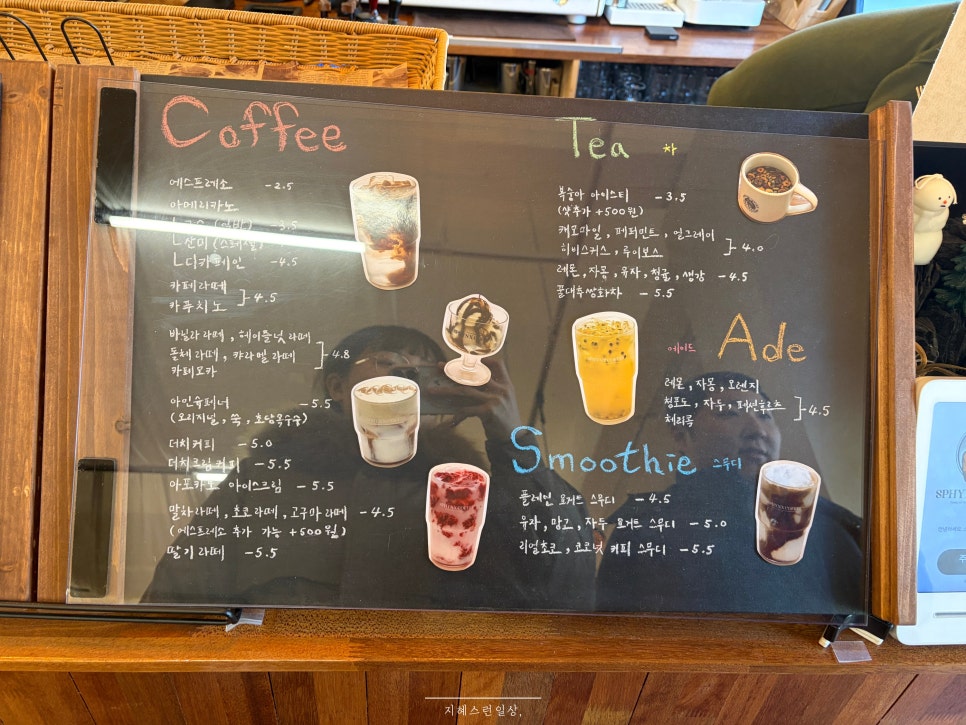 Coffee
에스프레소 - 2.5
아메리카노
- 3.5
ㄴ산미
ㄴ디카페인 - 4.5
카페라떼
카푸치노 } 4.5
바닐라라떼, 헤이즐넛라떼
돌체라떼, 캬라멜라떼 } - 4.8
카페모카
아인슈페너 - 5.5
(오리지널, 쑥, 초당옥수수)
더치커피 - 5.0
더치크림커피 - 5.5
아포카토 아이스크림 - 5.5
말차라떼, 초코라떼, 고구마라떼 - 4.5
(에스프레소 추가 가능 +500원)
딸기라떼 - 5.5
Tea 차
복숭아 아이스티 - 3.5
(샷추가 +500원)
캐모마일, 페퍼민트, 얼그레이
히비스커스, 루이보스 } - 4.0
레몬, 자몽, 유자, 청귤, 생강 - 4.5
꿀대추쌍화차 - 5.5
에이드 Ade
레몬, 자몽, 오렌지
청포도, 자두, 패션후르츠 } - 4.5
체리콕
Smoothie 스무디
플레인 요거트 스무디 - 4.5
유자, 망고, 자두 요거트 스무디 - 5.0
리얼초코, 코코넛 커피 스무디 - 5.5
SPHY
지혜스런일상,